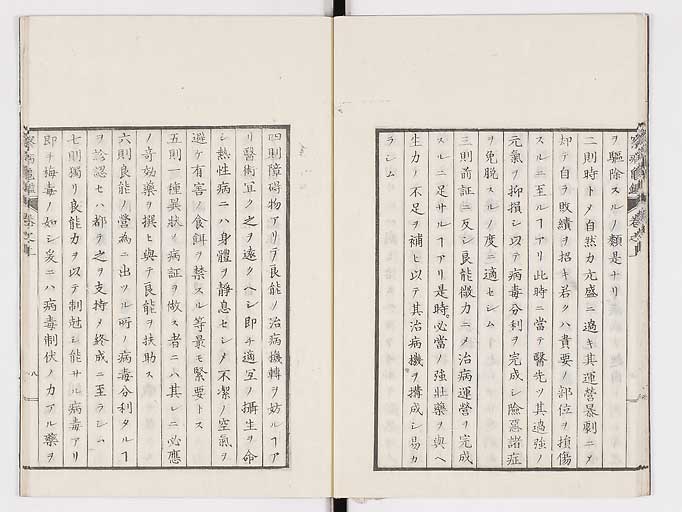 ヲ驅除スルノ類是ナリ
二則時トメ自然力亢盛ニ過キ其運營暴劇ニメ
却テ自ラ敗績ヲ招キ若クハ貴要ノ部位ヲ損傷
スルニ至ルヿアリ此時ニ當テ醫先ツ其過強ノ
元氣ヲ抑損シ以テ病毒分利ヲ完成シ險惡諸症
ヲ免脱スルノ度ニ適セシム
三則前証ニ反シ良能微力ニメ治病運營ヲ完成
スルニ足サルヿアリ是時必當ノ強壯藥ヲ與ヘ
生力ノ不足ヲ補ヒ以テ其治病機ヲ搆成シ易カ
ラシム
四則障碍物アリテ良能ノ治病機轉ヲ妨ルヿア
リ醫術宜ク之ヲ遠クヘシ即チ適宜ノ攝生ヲ命
シ熱性病ニハ身體ヲ靜息セシメ不潔ノ空氣ヲ
避ケ有害ノ食餌ヲ禁スル等最モ緊要トス
五則一種異狀ノ病証ヲ做ス者ニハ其レニ必應
ノ奇効藥ヲ撰ヒ與テ良能ヲ扶助ス
六則良能ノ營為ニ出ツル所ノ病毒分利タルヿ
ヲ診認セハ都テ之ヲ支持メ終成ニ至ラシム
七則獨リ良能力ヲ以テ制尅シ能サル病毒アリ
即チ梅毒ノ如シ爰ニハ病毒制伏ノ力アル藥ヲ
八